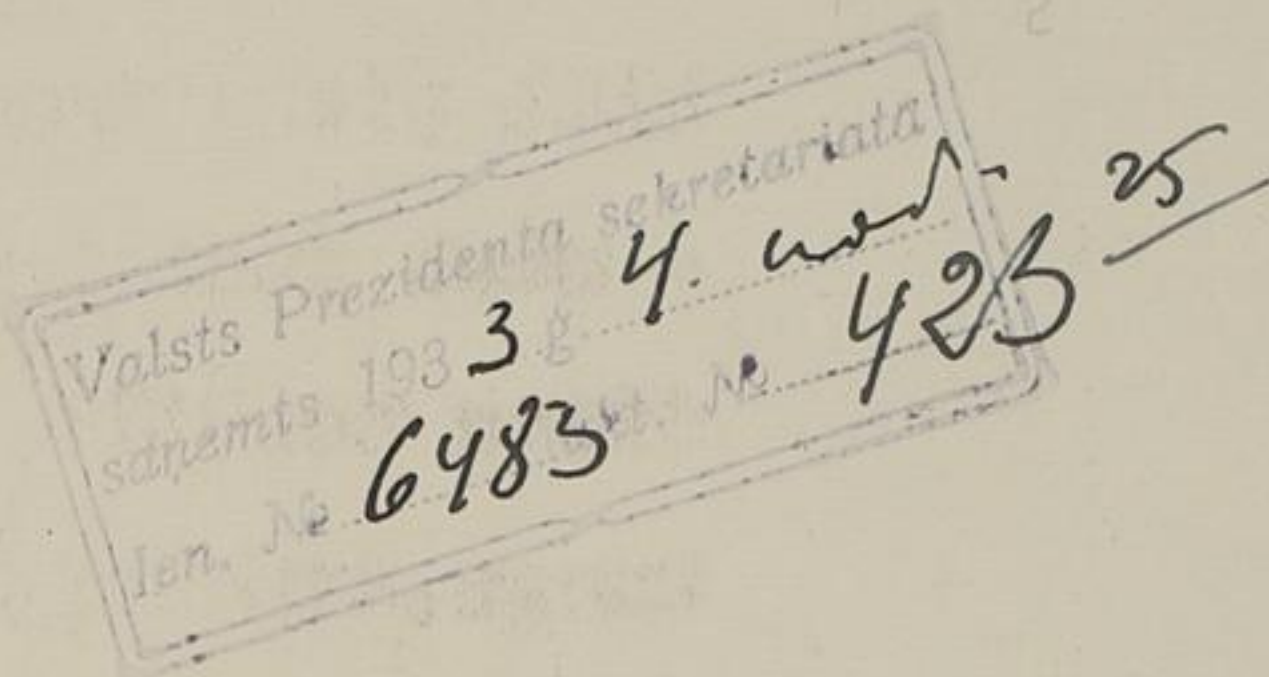 Valsts Prezidenta sekretariata
saņemts 1933 g. 4. nov.
Ien. № 6483 Akt. № 423
25